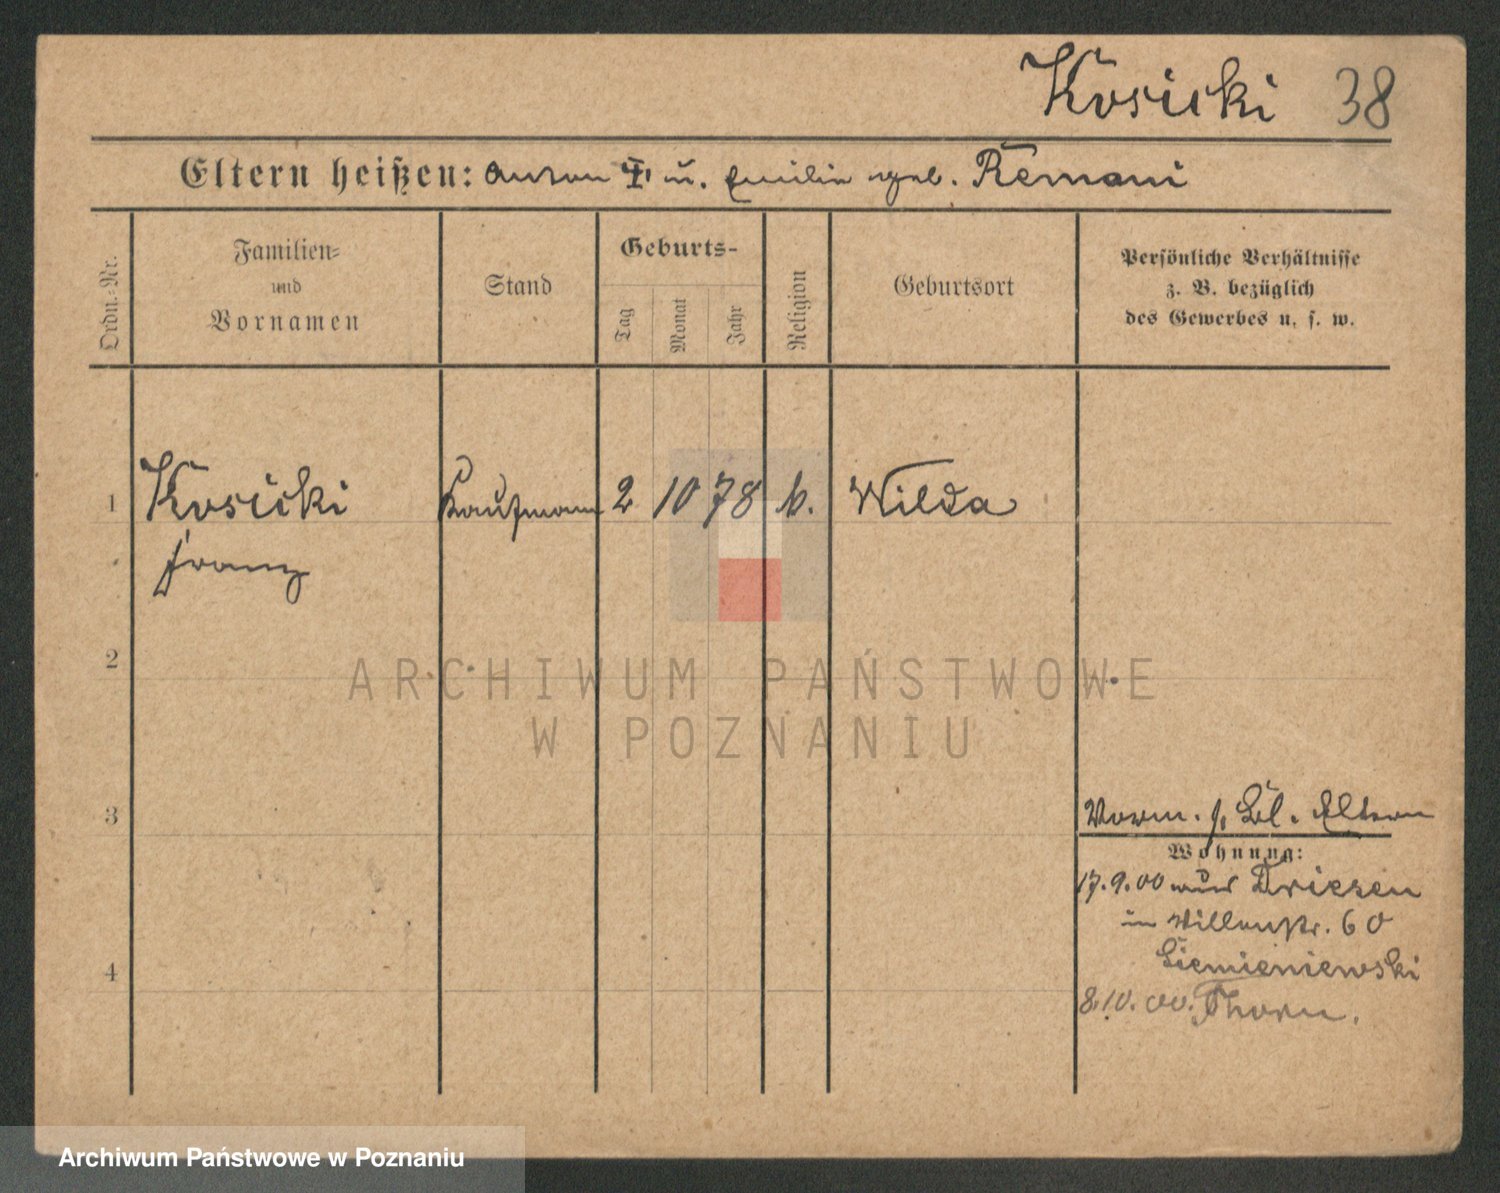 Kosicki 38
Eltern heißen: Anton † u. Emilie geb. Remani
Ordn.-Nr.
Familien-
und
Vornamen
Stand
Geburts-
Tag
Monat
Jahr
Religion
Geburtsort
Persönliche Verhältnisse
z. B. bezüglich
des Gewerbes u. s. w.
1 Kosicki Kaufmann 2 10 78 k. Wilda
Franz
2
3
4
Vorm. s. Bl. Eltern
Wohnung:
17.9.00 aus Driesen
in Villenstr. 60
Siemieniewski
8.10.00. Thorn.
ARCHIWUM PAŃSTWOWE
W POZNANIU
Archiwum Państwowe w Poznaniu